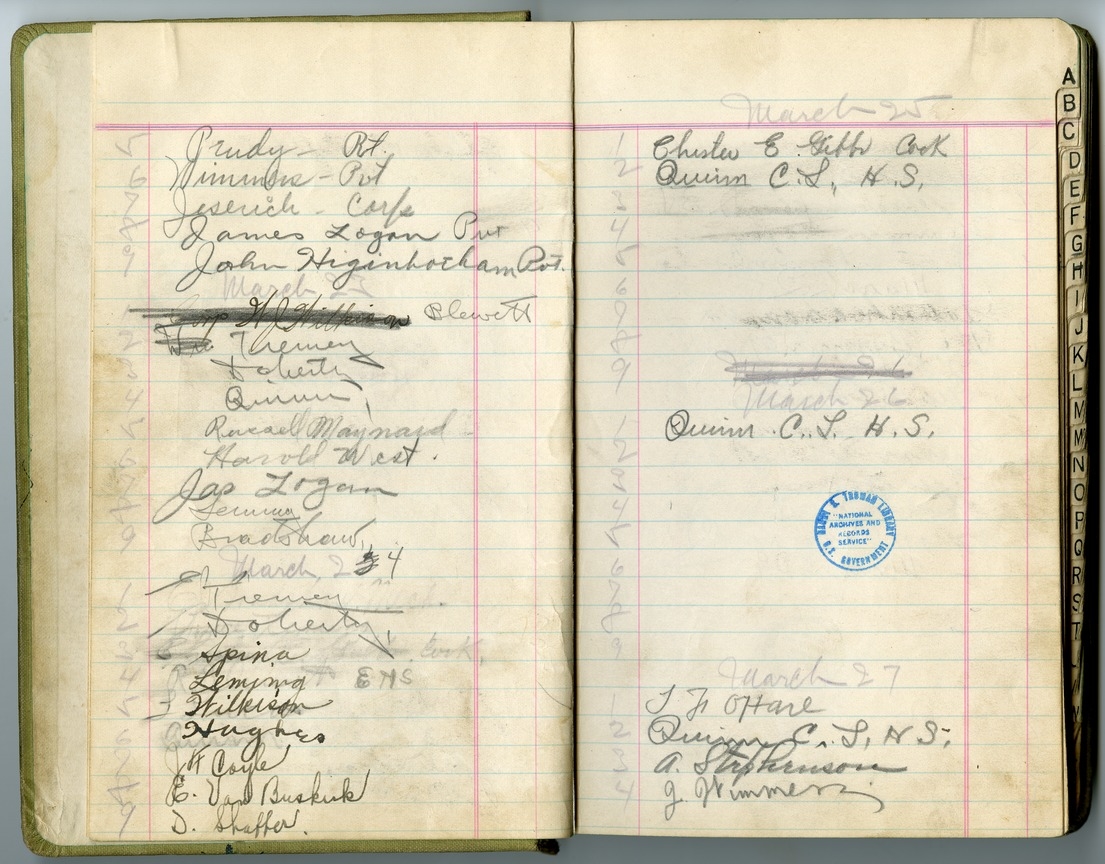 5 Prudy - Pvt.
6 Wimmers - Pvt
7 Jeserich - Corp
8 James Logan Pvt
9 John Higinbotham Pvt.
March 23
1 Blewett
2 Tremey
3 Doherty
4 Quinn
5 Russell Maynard
6 Harold West.
7 Jas Logan
8 Leming
9 Bradshaw
March, 24
1 Tremey
2 Doherty
3 Spina
4 Leming
5 Wilkison
6 Hughes
7 J H Coyle
8 E. Van Buskirk
9 D. Shaffer.
March 25
1 Chester E. Gibbs Cook
2 Quinn C. L, H. S,
3
4
5
6
7
8
9
March 26
1 Quinn C. L. H. S.
2
3
4
5
6
7
8
9
March 27
1 J F O'Hare
2 Quinn C. L, H S,
3 A. Stephenson
4 J. Wimmers
HARRY S. TRUMAN LIBRARY
"NATIONAL
ARCHIVES AND
RECORDS
SERVICE"
U.S. GOVERNMENT
A
B
C
D
E
F
G
H
I
J
K
L
M
Mc
N
O
P
Q
R
S
T